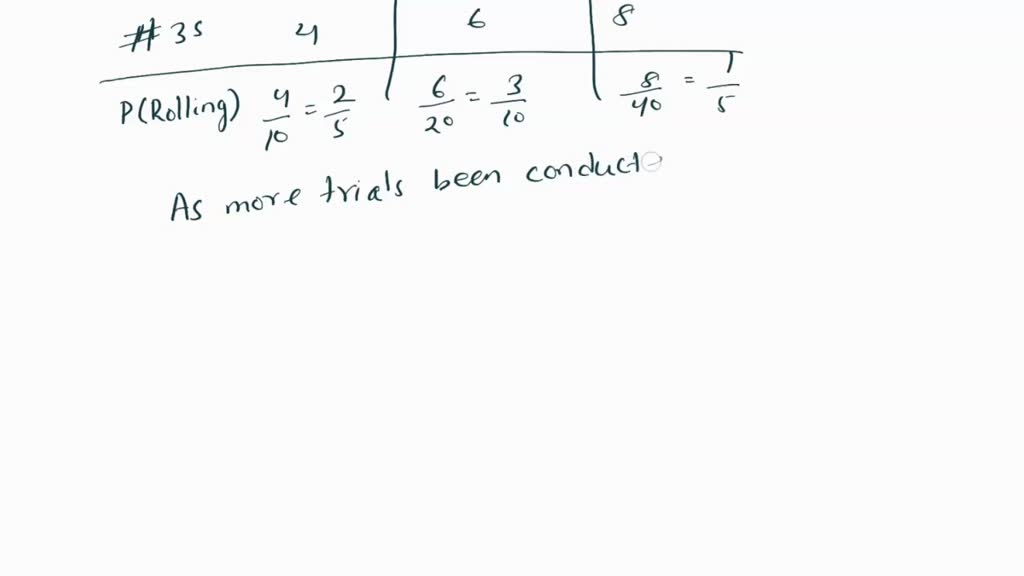 #3s 4 6 8
P(Rolling) 4/10 = 2/5 6/20 = 3/10 8/40 = 1/5
As more trials been conducte